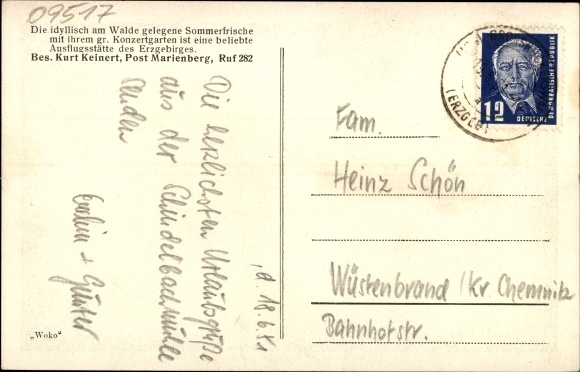 09517
Die idyllisch am Walde gelegene Sommerfrische
mit ihrem gr. Konzertgarten ist eine beliebte
Ausflugsstätte des Erzgebirges.
Bes. Kurt Keinert, Post Marienberg, Ruf 282
, d. 18.6.51
Die herzlichsten Urlaubsgrüße
aus der Schindelbachmühle
senden
+ Günter
„Woko"
(ERZGEB
DEUTSCHE
DEMOKRATISCHE REPUBLIK
12
Fam.
Heinz Schön
Wüstenbrand / Kr. Chemnitz
Bahnhofstr.